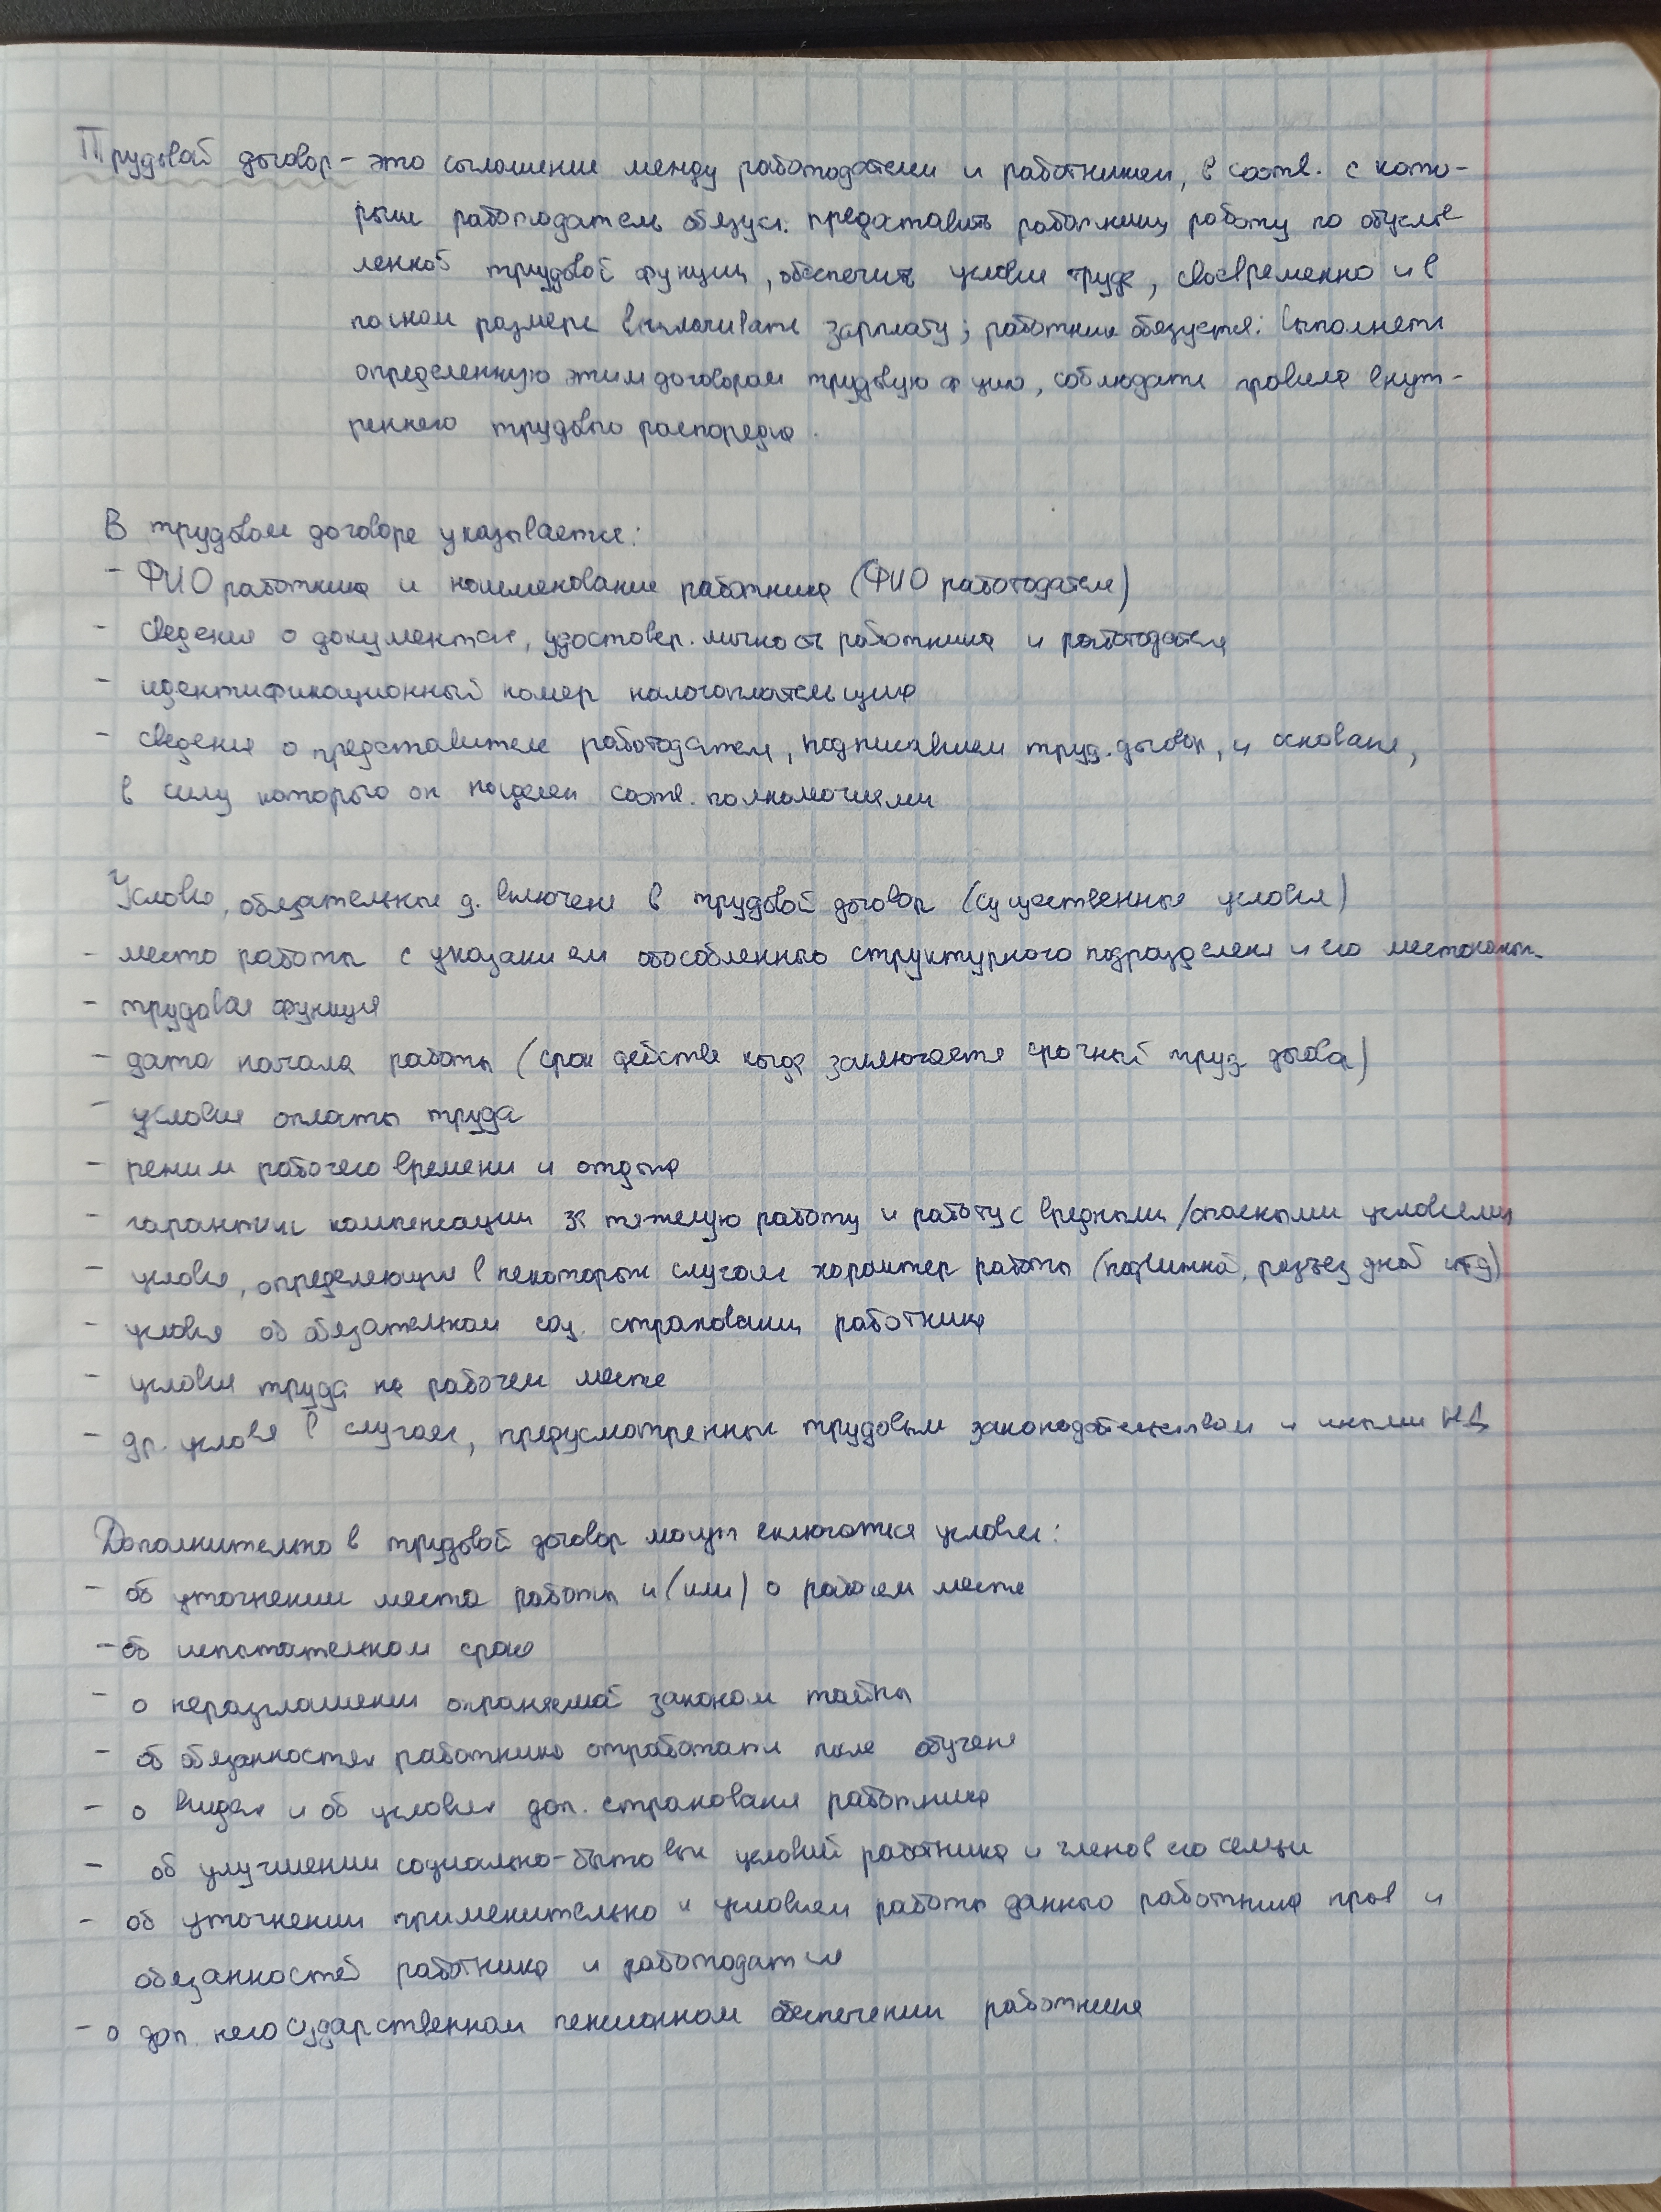 Трудовой договор - это соглашение между работодателем и работником, в соотв. с кото-
рым работодатель обязуся: предоставить работнику работу по обуслов
ленной трудовой функции, обеспечить условия труда, своевременно и в
полном размере выплачивать зарплату; работник обязуется: выполнять
определенную этим договором трудовую ф-цию, соблюдать правила внут-
реннего трудового распорядка.
В трудовом договоре указывается:
- ФИО работника и наименование работника (ФИО работодателя)
- сведения о документах, удостовер. личность работника и работодателя
- идентификационный номер налогоплательщика
- сведения о представителе работодателя, подписавшем труд. договор, и основание,
в силу которого он наделен соотв. полномочиями
Условия, обязательные д. включения в трудовой договор (существенные условия)
- место работы с указанием обособленного структурного подразделения и его местонахож.
- трудовая функция
- дата начала работы (срок действия когда заключается срочный труд. договор)
- условия оплаты труда
- режим рабочего времени и отдыха
- гарантии компенсации за тяжелую работу и работу с вредными/опасными условиями
- условия, определяющие в некоторых случаях характер работы (подвижной, разъездной итд)
- условия об обязательном соц. страховании работника
- условия труда на рабочем месте
- др. условия в случаях, предусмотренных трудовым законодательством и иными НА
Дополнительно в трудовой договор могут включатся условия:
- об уточнении места работы и (или) о рабочем месте
- об испытательном сроке
- о неразглашении охраняемой законом тайны
- об обязанностях работника отработать после обучения
- о видах и об условиях доп. страхования работника
- об улучшении социально-бытовых условий работника и членов его семьи
- об уточнении применительно к условиям работы данного работника прав и
обязанностей работника и работодателя
- о доп. негосударственном пенсионном обеспечении работника